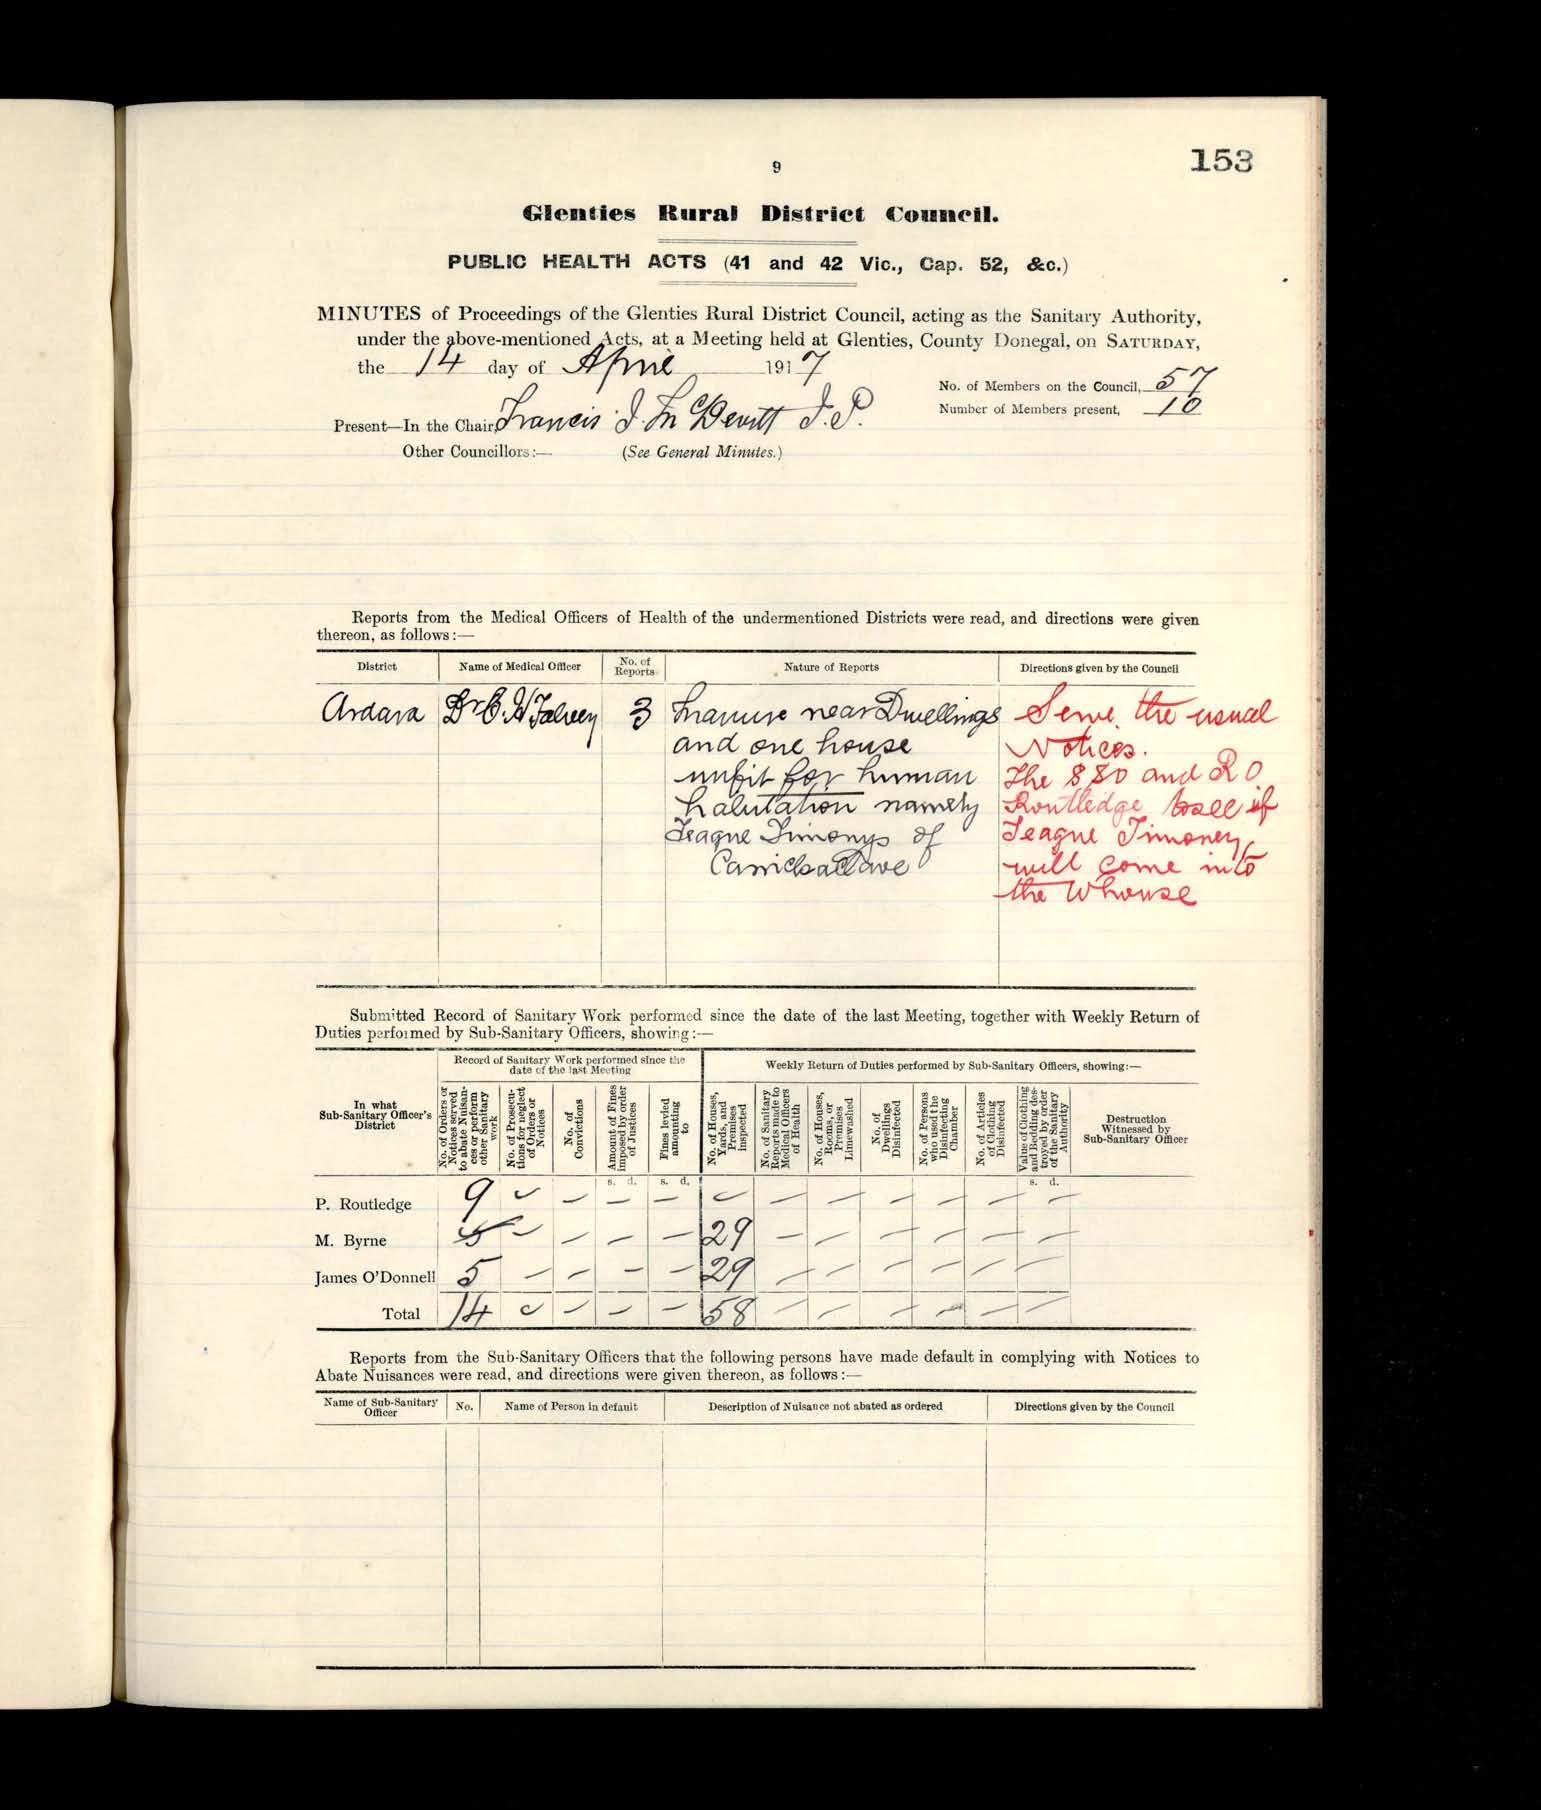 153
9
Glenties Rural District Council.
PUBLIC HEALTH ACTS (41 and 42 Vic., Cap. 52, &c.)
MINUTES of Proceedings of the Glenties Rural District Council, acting as the Sanitary Authority,
under the above-mentioned Acts, at a Meeting held at Glenties, County Donegal, on SATURDAY,
the 14 day of April 1917
No. of Members on the Council, 57
Number of Members present, 10
Present—In the Chair, Francis J. McDevitt J.P.
Other Councillors:— (See General Minutes.)
Reports from the Medical Officers of Health of the undermentioned Districts were read, and directions were given
thereon, as follows:—
District Name of Medical Officer No. of Reports Nature of Reports Directions given by the Council
Ardara Dr C. H Falvey 3 Manure near Dwellings Serve the usual
and one house Notices.
unfit for human The SSO and RO
habitation namely Routledge to see if
Teague Timonys of Teague Timoney,
will come into
the Whouse
Submitted Record of Sanitary Work performed since the date of the last Meeting, together with Weekly Return of
Duties performed by Sub-Sanitary Officers, showing:—
In what Sub-Sanitary Officer's District
Record of Sanitary Work performed since the date of the last Meeting
Weekly Return of Duties performed by Sub-Sanitary Officers, showing:—
No. of Orders or Notices served to abate Nuisances or perform other Sanitary work
No. of Prosecutions for neglect of Orders or Notices
No. of Convictions
Amount of Fines imposed by order of Justices
Fines levied amounting to
No. of Houses, Yards, and Premises inspected
No. of Sanitary Reports made to Medical Officers of Health
No. of Houses, Rooms, or Premises Limewashed
No. of Dwellings Disinfected
No. of Persons who used the Disinfecting Chamber
No. of Articles of Clothing Disinfected
Value of Clothing and Bedding destroyed by order of the Sanitary Authority
Destruction Witnessed by Sub-Sanitary Officer
s. d. s. d. s. d.
P. Routledge 9 — — — — — — — — — — —
M. Byrne — — — — 29 — — — — — —
James O'Donnell 5 — — — — 29 — — — — — —
Total 14 — — — — 58 — — — — — —
Reports from the Sub-Sanitary Officers that the following persons have made default in complying with Notices to
Abate Nuisances were read, and directions were given thereon, as follows:—
Name of Sub-Sanitary Officer No. Name of Person in default Description of Nuisance not abated as ordered Directions given by the Council